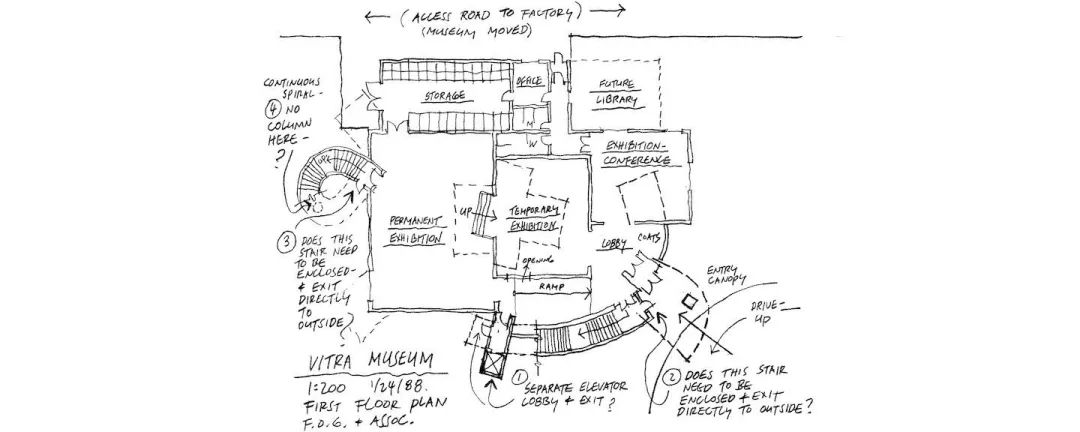 (ACCESS ROAD TO FACTORY)
(MUSEUM MOVED)
CONTINUOUS
SPIRAL-
④ NO
COLUMN
HERE-
?
STORAGE
OFFICE
M
W
FUTURE
LIBRARY
EXHIBITION-
CONFERENCE
UP
PERMANENT
EXHIBITION
UP
TEMPORARY
EXHIBITION
OPENING
RAMP
LOBBY
COATS
ENTRY
CANOPY
DRIVE-
UP
③ DOES THIS
STAIR NEED
TO BE
ENCLOSED-
+ EXIT
DIRECTLY
TO
OUTSIDE?
VITRA MUSEUM
1:200 1/24/88.
FIRST FLOOR PLAN
F.O.G. + ASSOC.
① SEPARATE ELEVATOR
LOBBY + EXIT?
② DOES THIS STAIR
NEED TO BE
ENCLOSED + EXIT
DIRECTLY TO OUTSIDE?